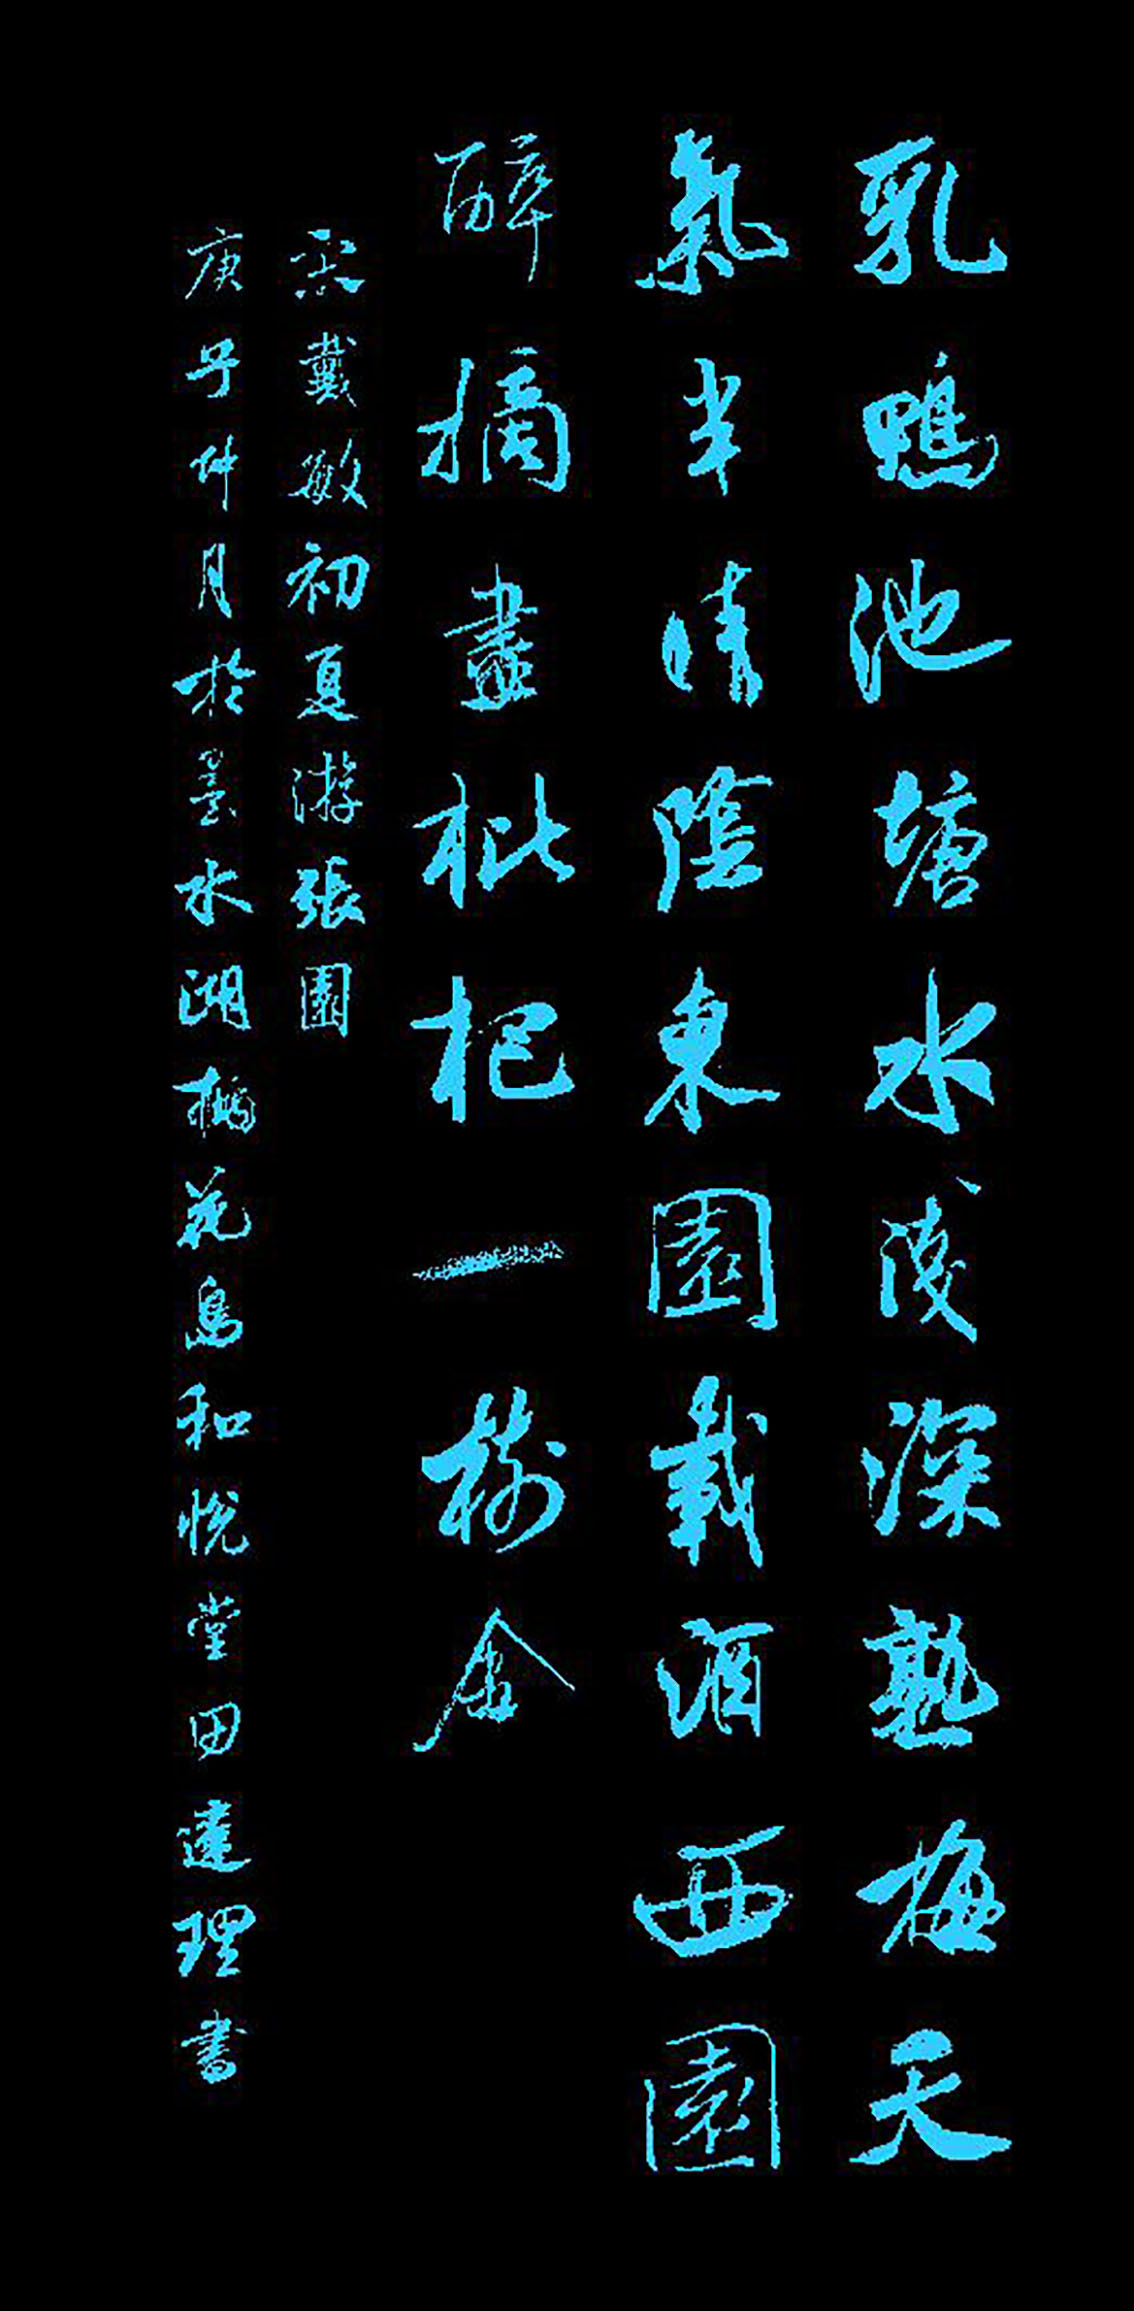 乳鴨池塘水淺深熟梅天
氣半晴陰東園載酒西園
醉摘盡枇杷一樹金
宋戴敏初夏游張園
庚子仲月於墨水湖花島和悅堂田達理書